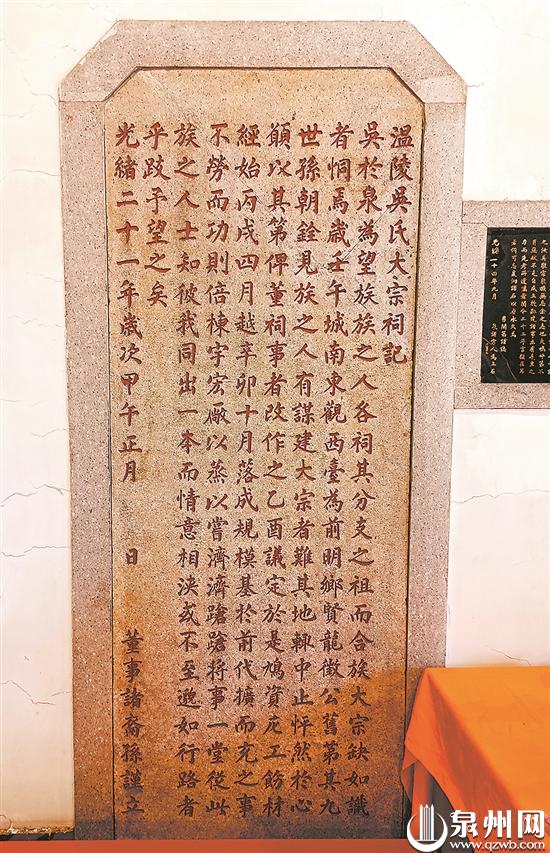 温陵吳氏大宗祠記
吳於泉為望族族之人各祠其分支之祖而合族大宗缺如識
者恫焉歲壬午城南東觀西臺為前明鄉賢龍徵公舊第其九
世孫朝銓見族之人有謀建大宗者難其地輒中止怦然於心
願以其第俾董祠事者改作之乙酉議定於是鳩資庀工飭材
經始丙戌四月越辛卯十月落成規模基於前代擴而充之事
不勞而功則倍棟宇宏厰以蒸以嘗濟濟蹌蹌將事一堂從此
族之人士知彼我同出一本而情意相浹或不至邈如行路者
乎跂予望之矣
光緒二十一年歲次甲午正月 日 董事諸裔孫謹立
光緒二十四年九月
泉州网
www.qzwb.com